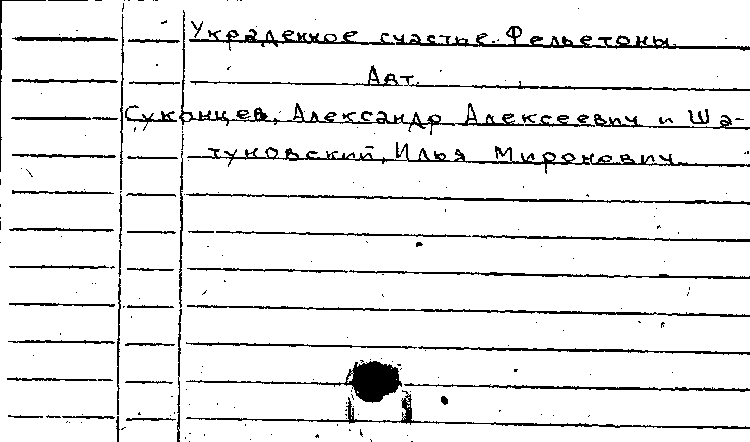 Украденное счастье. Фельетоны.
Авт.
Суконцев, Александр Алексеевич и Ша-
туновский, Илья Миронович.